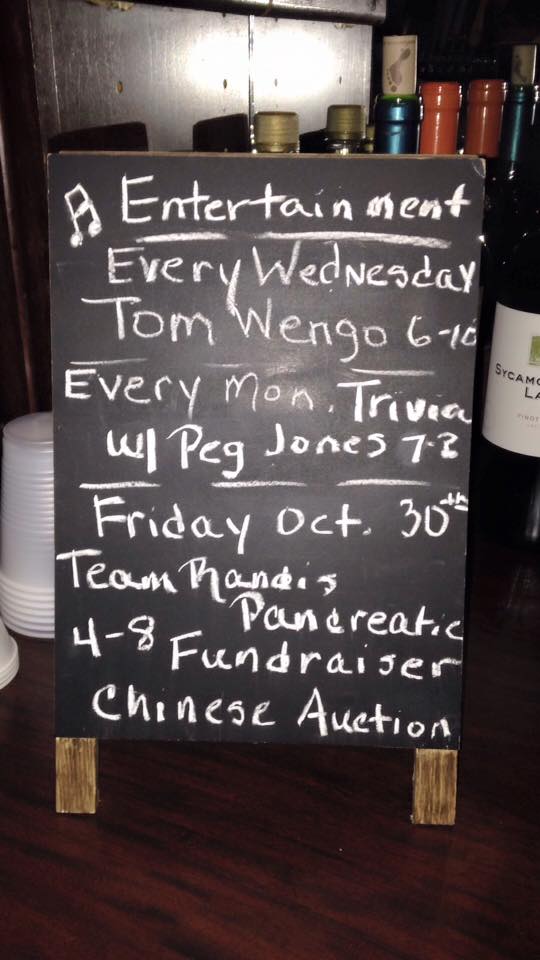 Entertainment
Every Wednesday
Tom Wengo 6-10
Every Mon. Trivia
w/ Peg Jones 7-8
Friday Oct. 30th
Team Randis
Pancreatic
4-8 Fundraiser
Chinese Auction
SYCAMO
LA
PINOT